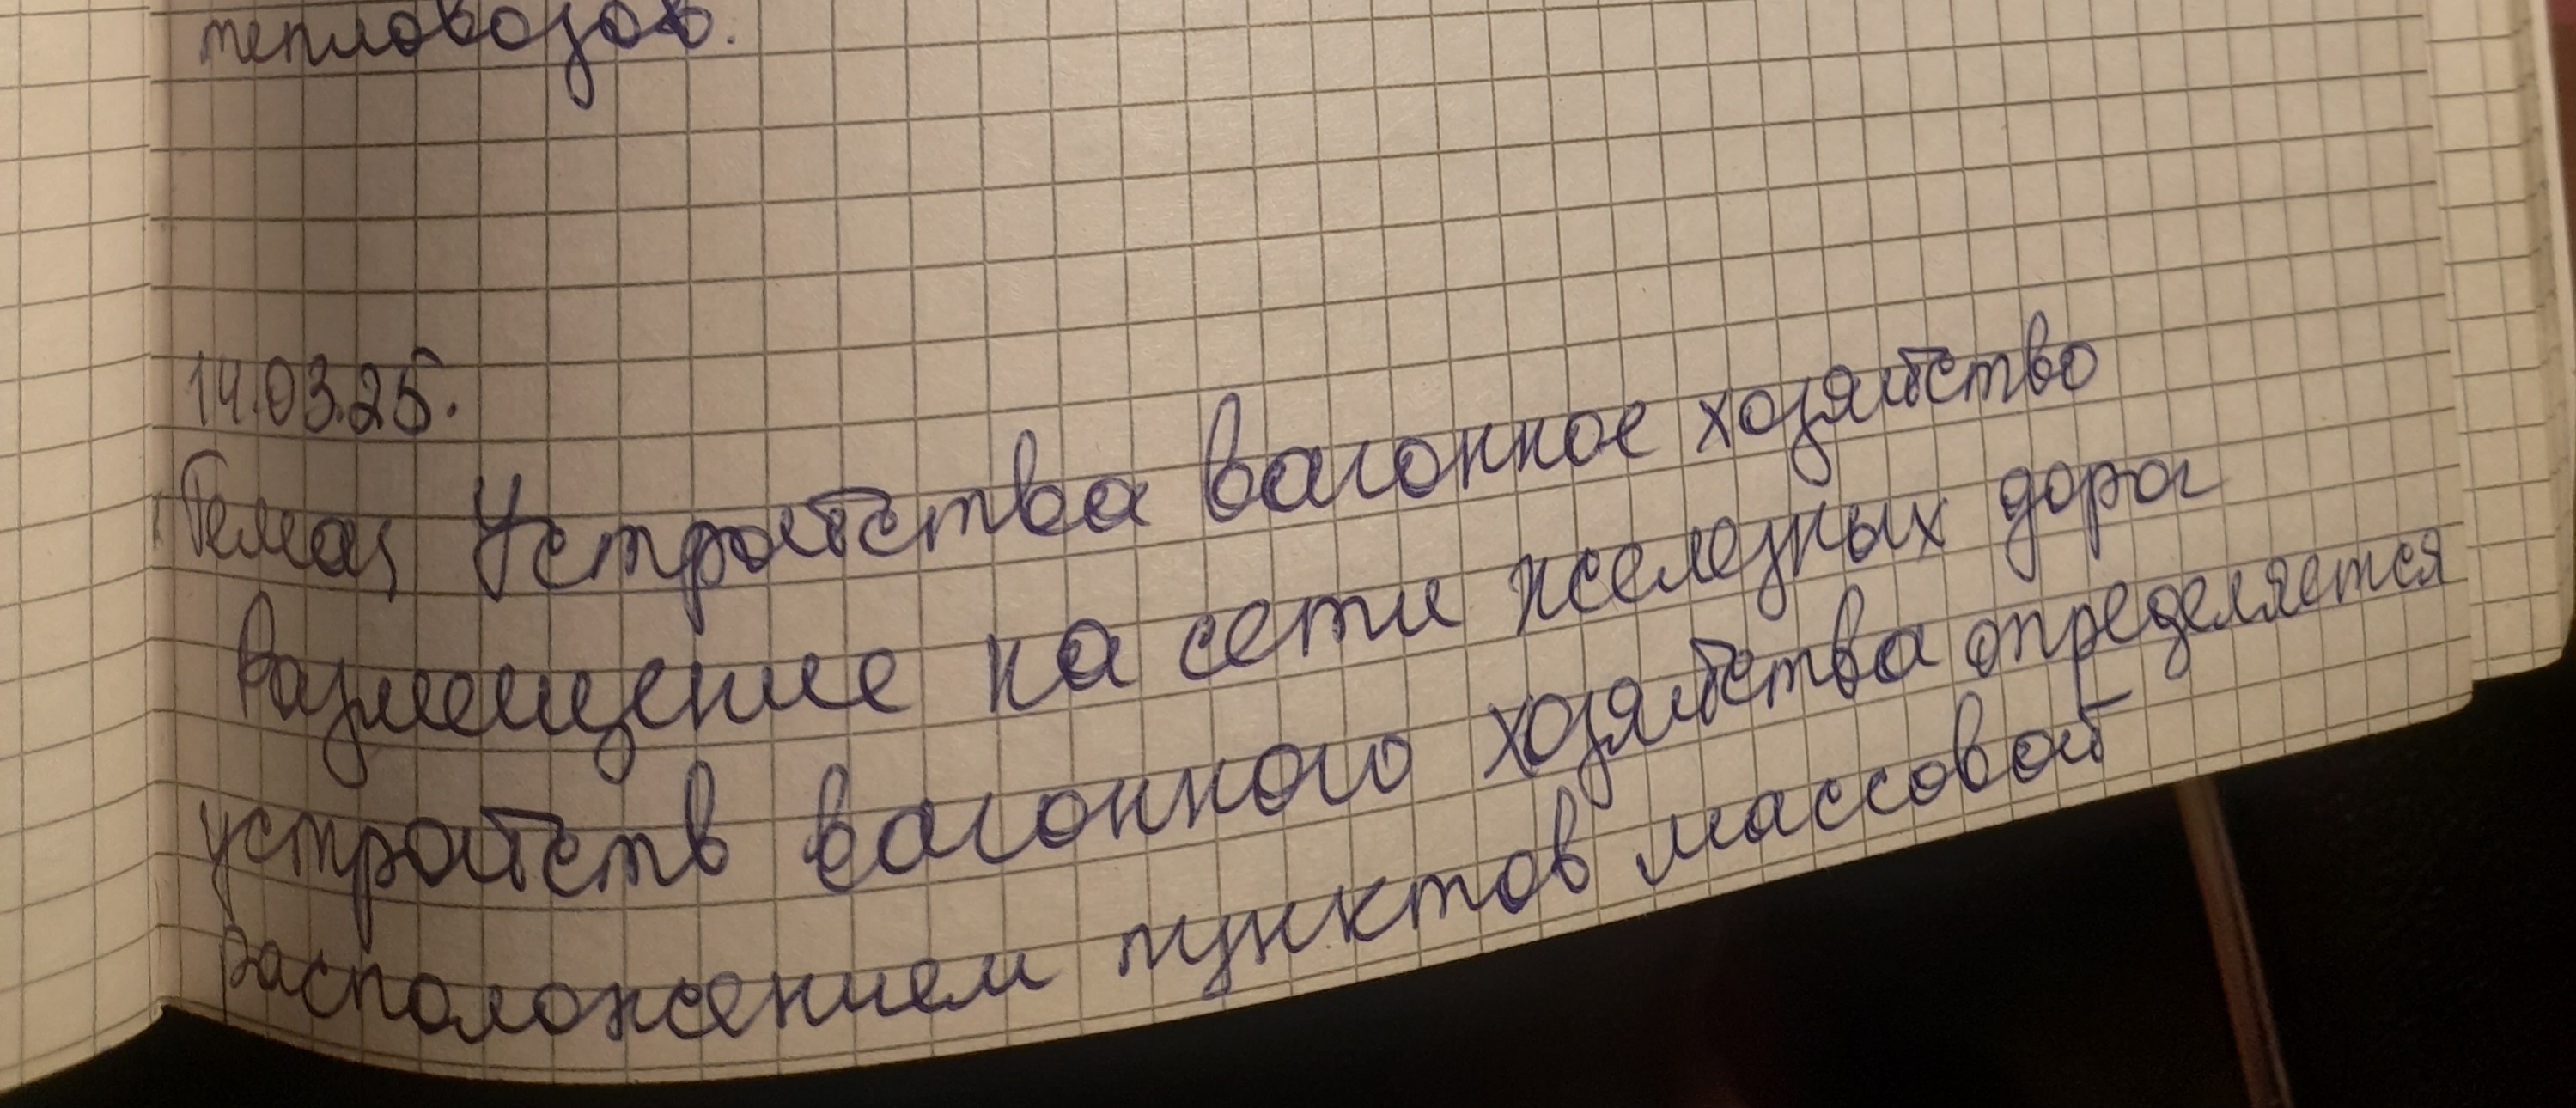 тепловозов.
14.03.25.
Тема: Устройства вагонное хозяйство
Размещение на сети железных дорог
устройств вагонного хозяйства определяется
расположением пунктов массовой